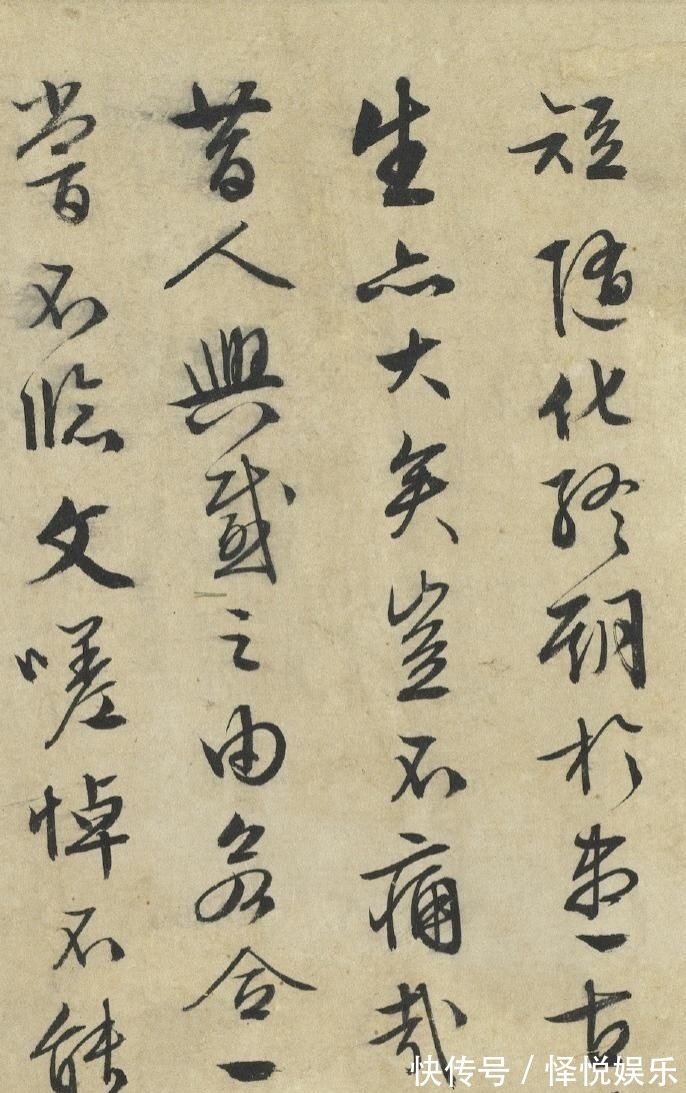 短隨化終期於盡古
生亦大矣豈不痛哉
昔人興感之由若合一
嘗不臨文嗟悼不能
快传号 / 怿悦娱乐